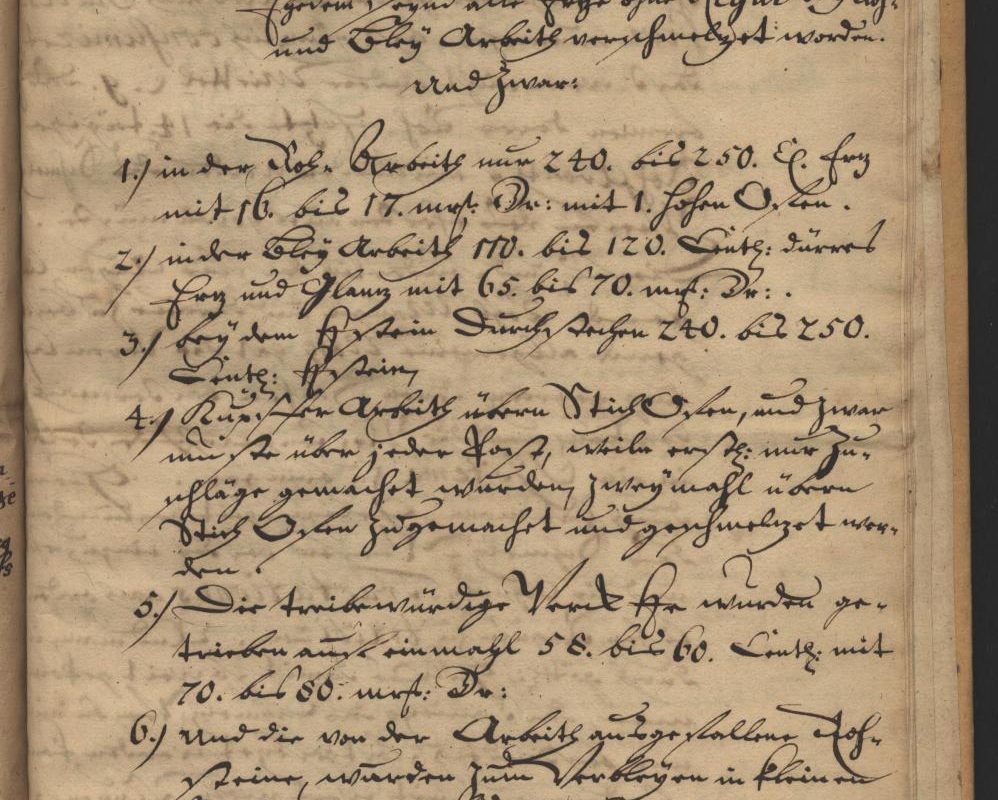 seynd alle Ertze ohne
und Bley Arbeith verschmeltzet worden.
und zwar:
1.) in der Roh- Arbeith nur 240. bis 250. Ertz
mit 16. bis 17. mrk: Dr: mit 1. hohen Ofen.
2.) in der Bley Arbeith 110. bis 120. Centh: dürres
Ertz und Glantz mit 65. bis 70. mrk: Dr: .
3.) bey dem stein durchstechen 240. bis 250.
Centh: stein,
4.) Kupffer Arbeith übern Stich Ofen, und zwar
muste über jeder Post, weiln erstl: nur Zu-
schläge gemachet wurden, zweymahl übern
Stich Ofen zugemachet und geschmeltzet wer-
den.
5.) Die treibewürdige Werck wurden ge-
trieben auff einmahl 58. bis 60. Centh: mit
70. bis 80. mrk: Dr:
6.) und die von der Arbeith ausgefallene Roh-
steine, wurden zum Verbleyen in kleinen